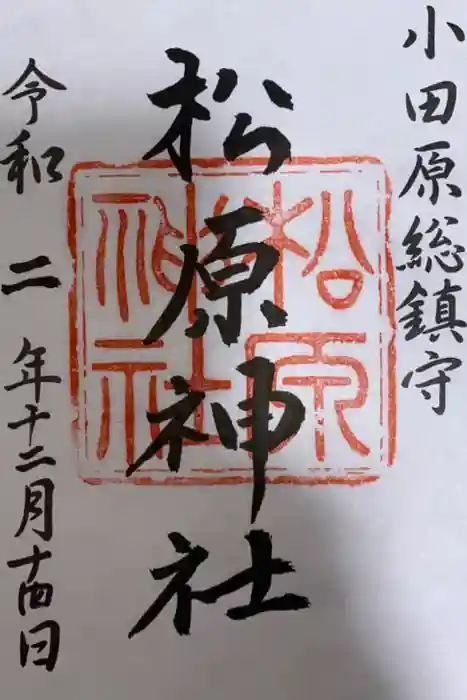 小田原総鎮守
松原神社
松原
神社
令和二年十二月十四日